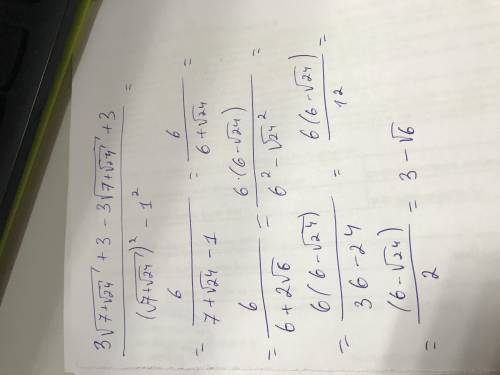 (3√(7+√24) + 3 - 3√(7+√24) + 3) / ((√(7+√24))² - 1²) =
= 6 / (7+√24 - 1) = 6 / (6+√24) =
= 6 / (6+2√6) = 6·(6-√24) / (6² - √24²) =
= 6(6-√24) / (36-24) = 6(6-√24) / 12 =
= (6-√24) / 2 = 3 - √6